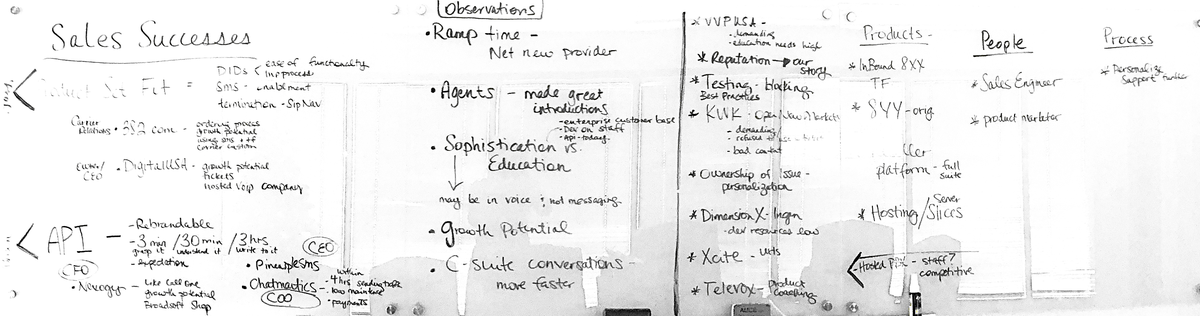 Sales Successes
Product Set Fit =
DIDs < ease of functionality
lnp process
SMS - enablement
termination - SipNav
Carrier
Relations
• 382 com -
ordering process
growth potential
using sms + tf
Carrier Custom
Owner/
CEO
• DigitalUSA -
growth potential
tickets
Hosted VoIP company
API -
- Rebrandable
- 3 min / 30 min / 3 hrs
grasp it understand it write to it
- Expectation
CFO
• Nexogy -
Like Call One
growth potential
Broadsoft Shop
CEO
• Pineaplesms
• Chatmactics -
COO
within
4 hrs sending texts
- low maintence
- payments
Observations
• Ramp time -
Net new provider
• Agents - made great
introductions
- enterprise customer base
- Dev on staff
- Api-today
• Sophistication vs.
Education
may be in voice & not messaging.
• Growth Potential
• C-suite conversations -
more faster
* VVPUSA -
- demanding
- education needs high
* Reputation → our
story
* Testing - blocking
Best Practices
* KWK - Open New Markets
- demanding
- refused to
- bad content
* Ownership of Issue -
personalization
* DimensionX - Ingen
- dev resources low
* Xcite -
* Televox - product
coaching
Products -
* InBound 8XX
TF
* 8YY - orig
platform - full
suite
* Hosting / Server
Slices
- Hosted PBX - staff?
competitive
People
* Sales Engineer
* product marketer
Process
* Personalize
Support